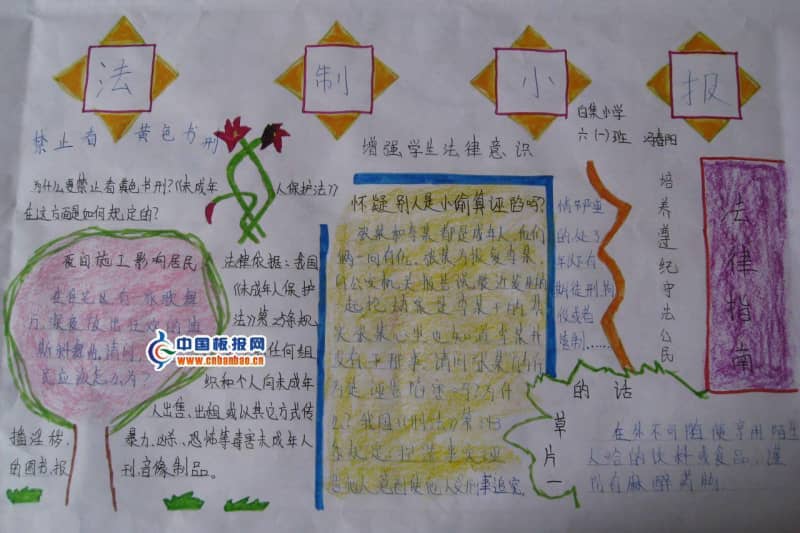 法 制 小 报
白集小学
六(一)班 冯春阳
禁止看 黄色书刊
为什么要禁止看黄色书刊?《未成年人保护法》
在这方面是如何规定的?
夜间施工影响居民
在自宅区有一家歌舞
厅,深夜传出狂欢的
斯科舞曲,请问
民应该怎么办?
法律依据:我国
《未成年人保护
法》第 条规
任何组
织和个人向未成年
人出售、出租或以其它方式传
播淫秽、暴力、凶杀、恐怖等毒害未成年人
的图书、报刊音像制品。
中国板报网
www.cnbanbao.cn
增强学生法律意识
怀疑别人是小偷算诬陷吗?
张某和李某都是成年人,他们
俩一向有仇。张某为报复李某,
向公安机关报告说最近发生的
一起抢劫案是李某干的,其
实张某心里也知道李某并
没有干那事。请问张某的行
为是诬告陷害吗?为什
么?我国《刑法》第
条规定:捏造事实诬
告他人意图使他人受刑事追究,
情节严重
的,处三
年以下有
期徒刑、拘
役或者
管制……
培养遵纪守法公民
法律指南
草片一的话
在集不可随便享用陌生
人给的饮料或食品,谨
防有麻醉药物。